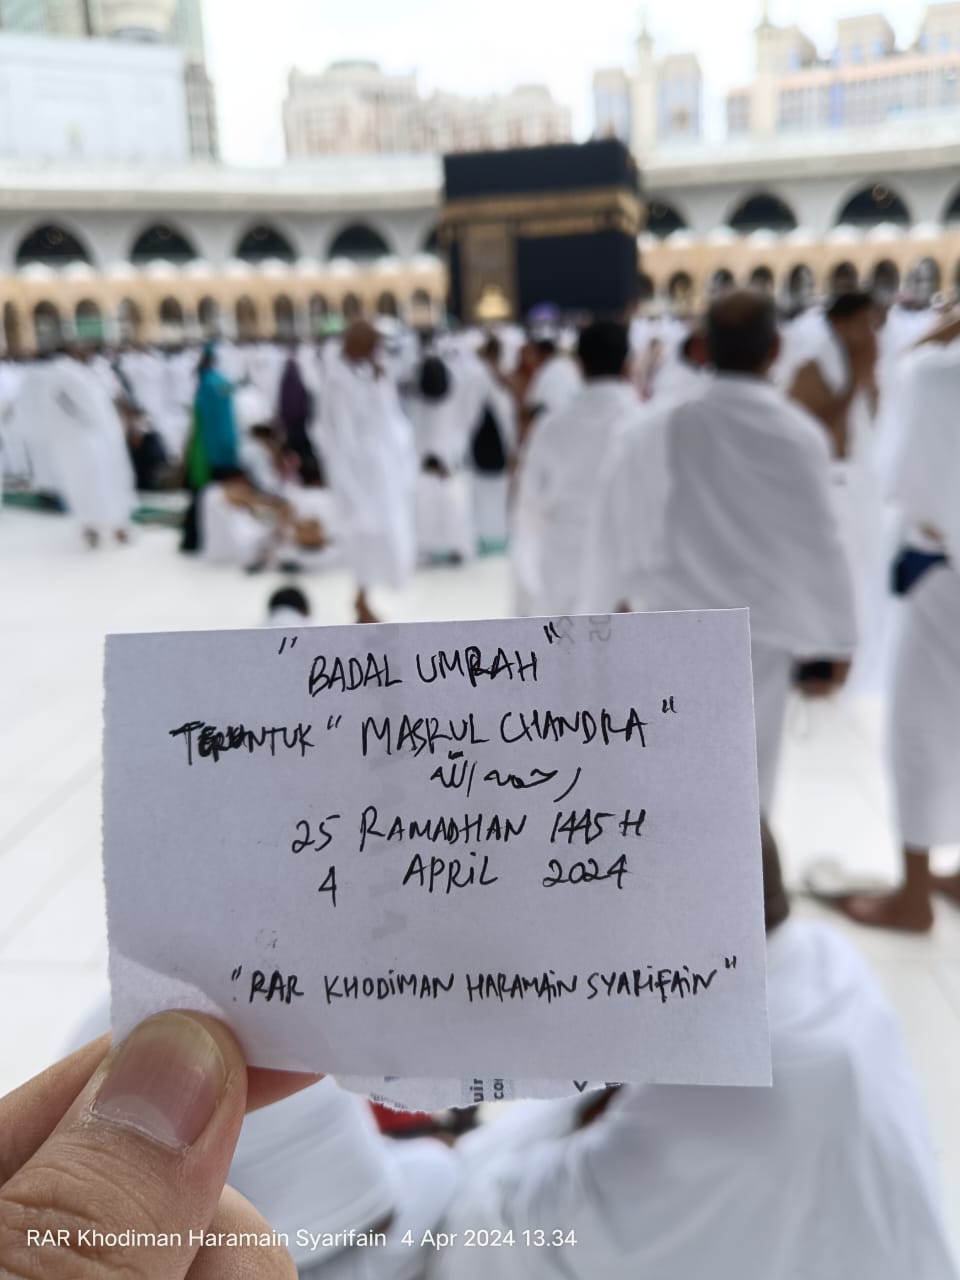 "BADAL UMRAH"
TERUNTUK "MASRUL CHANDRA"
رحمه الله
25 RAMADHAN 1445 H
4 APRIL 2024
"RAR KHODIMAN HARAMAIN SYARIFAIN"
RAR Khodiman Haramain Syarifain 4 Apr 2024 13.34